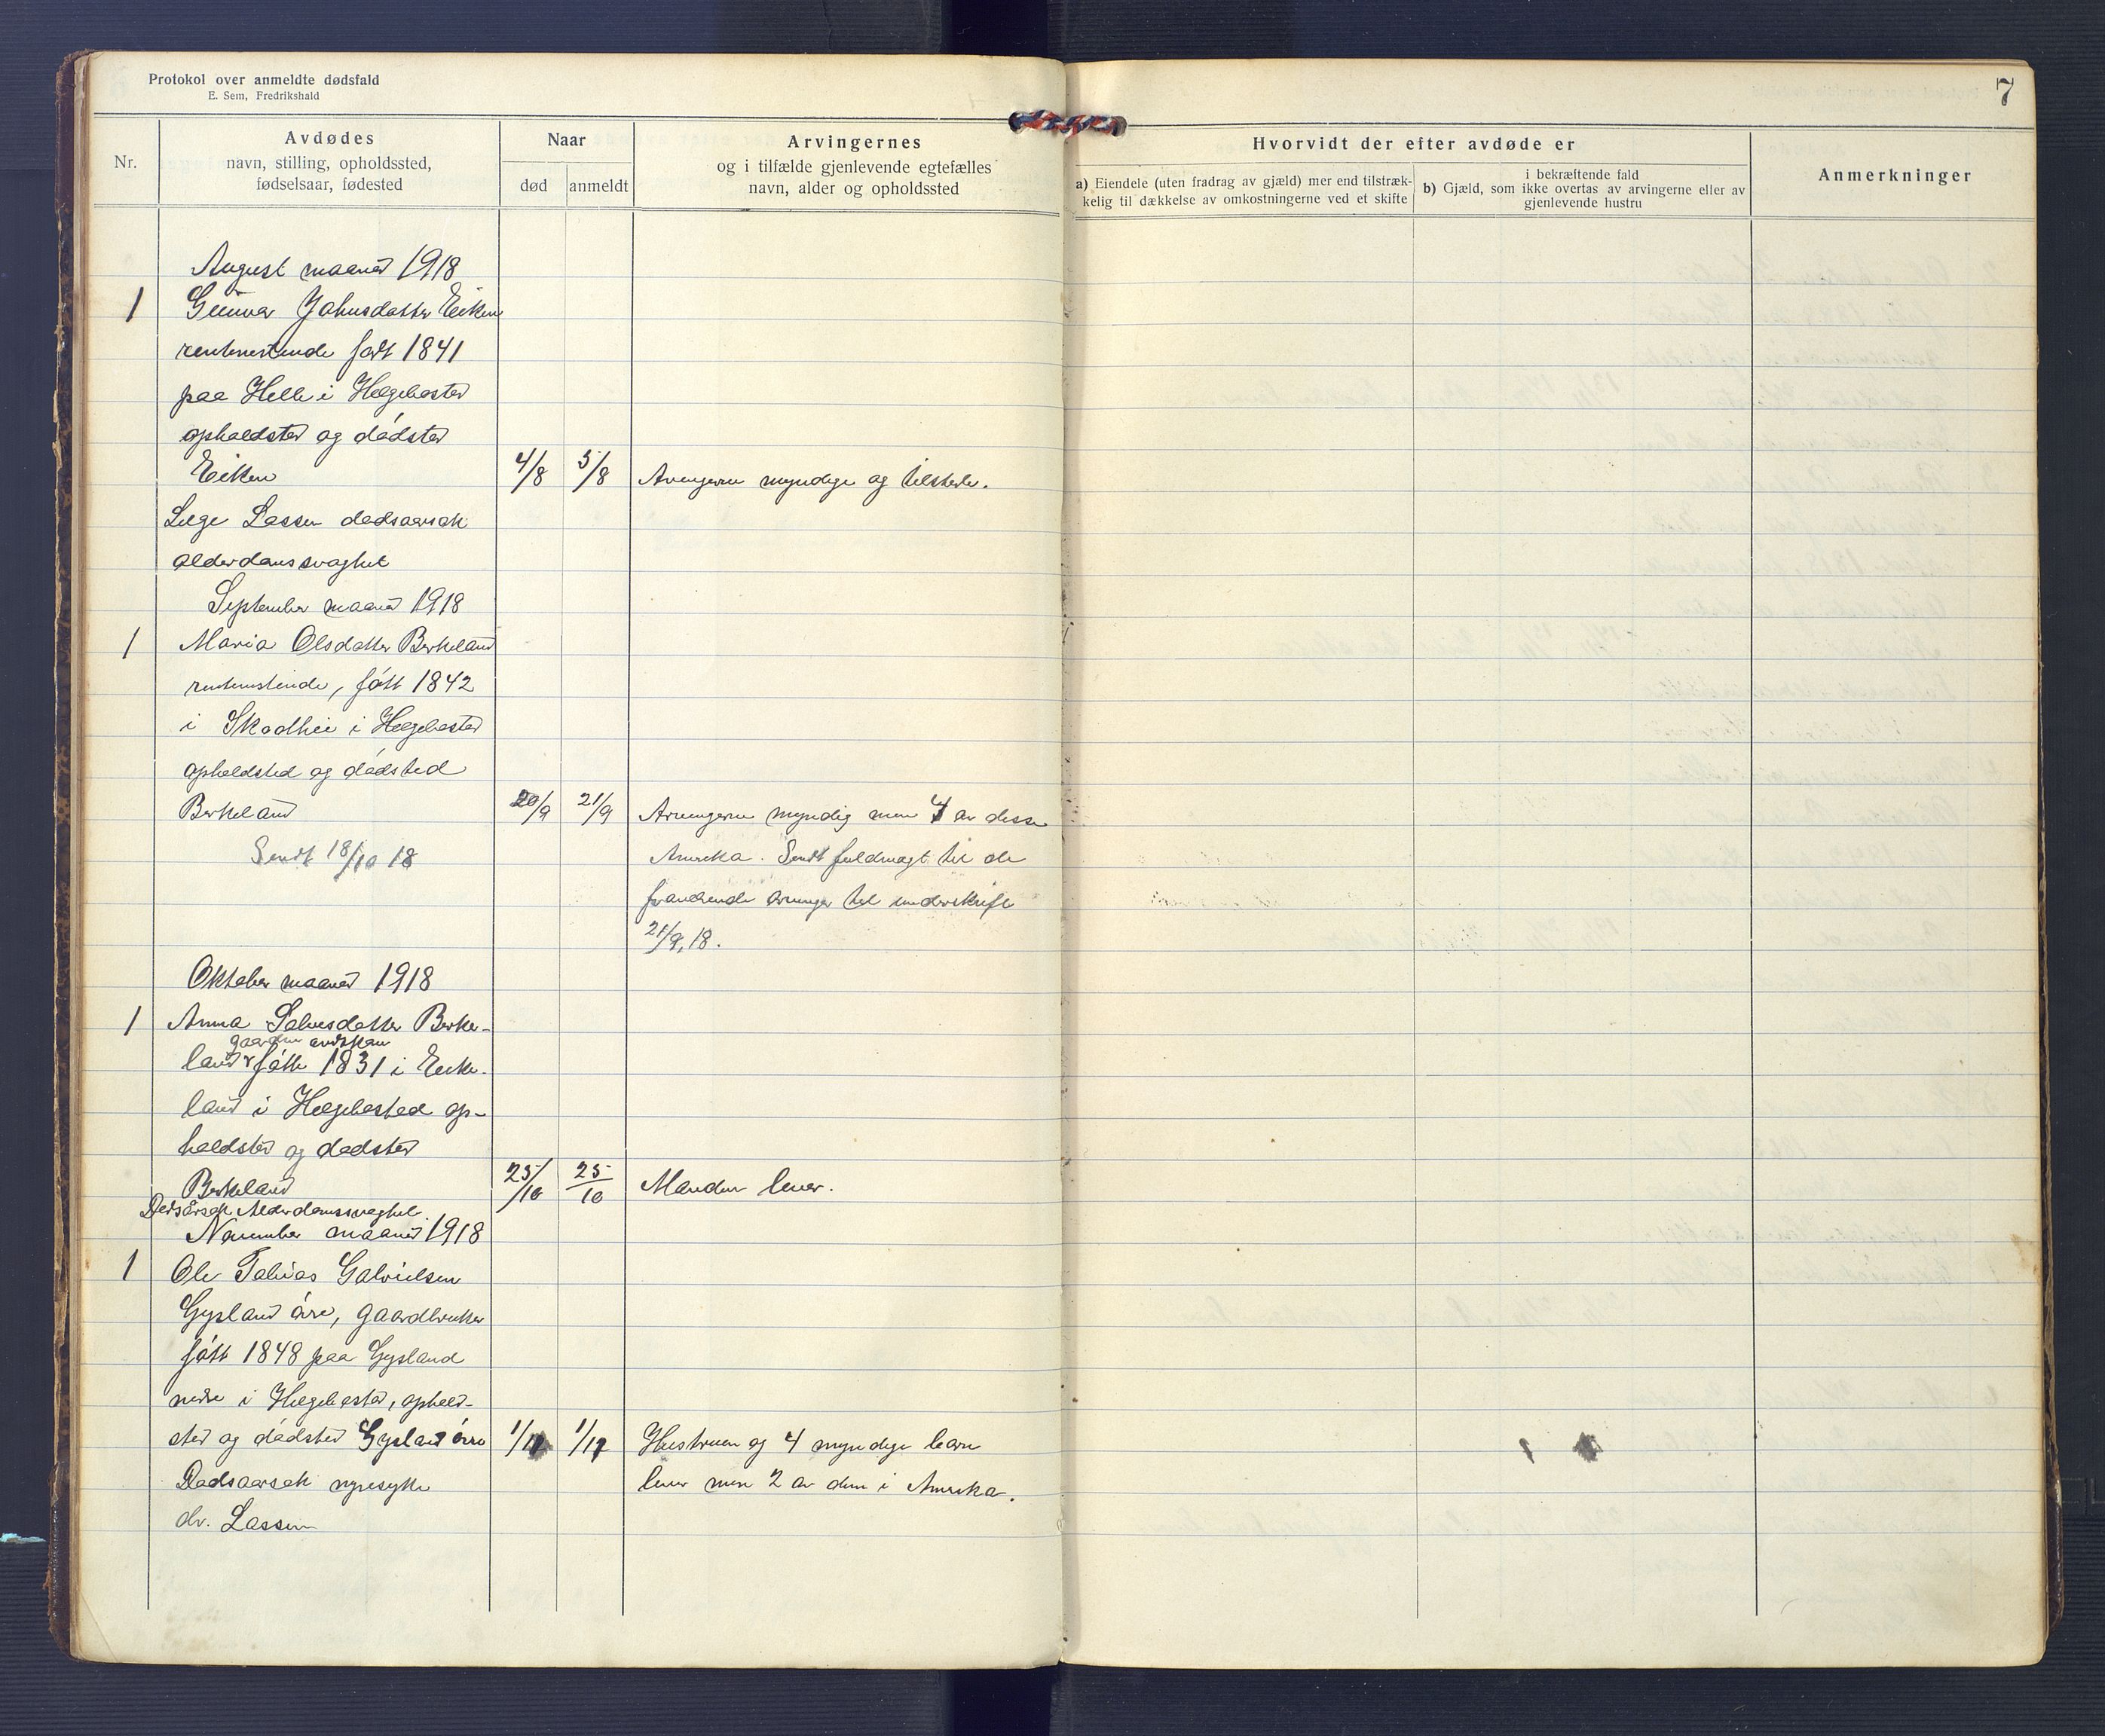 Protokol over anmeldte dødsfald
E. Sem, Fredrikshald
7
Nr.
Avdødes
navn, stilling, opholdssted,
fødselsaar, fødested
Naar
død
anmeldt
Arvingernes
og i tilfælde gjenlevende egtefælles
navn, alder og opholdssted
Hvorvidt der efter avdøde er
a) Eiendele (uten fradrag av gjæld) mer end tilstræk-
kelig til dækkelse av omkostningerne ved et skifte
i bekræftende fald
b) Gjæld, som ikke overtas av arvingerne eller av
gjenlevende hustru
Anmerkninger
August maaned 1918
1 Gunvor Johnsdatter Eiken
rentenistende født 1841
paa Helle i Hægebosted
opholdsted og dødsted
Eiken 4/8 5/8 Arvingerne myndige og tilstede.
Læge Lassen dødsaarsak
alderdomssvaghet
September maaned 1918
1 Maria Olsdatter Berkeland
rentenistende, født 1842
i Skodhei i Hægebosted
opholdsted og dødsted
Berkeland 20/9 21/9 Arvingerne myndig men 4 av disse
Sendt 18/10 18 Amerika. Sendt fuldmagt til de
fraværende arvinger til underskrift
21/9, 18.
Oktober maaned 1918
1 Anna Salvesdatter Berke-
gaardm enkskau
land født 1831 i Eike-
land i Hægebosted op-
holdsted og dødsted
Berkeland 25/10 25/10 Manden lever.
Dødsårsak Alderdomssvaghet
November maaned 1918
1 Ole Tobias Gabrielsen
Gysland øvre, gaardbruker
født 1848 paa Gysland
nedre i Hægebosted, ophold-
sted og dødsted Gysland øvre 1/11 1/11 Hustruen og 4 myndige barn
Dødsaarsak nyresyke lever men 2 av dem i Amerika.
dr. Lassen